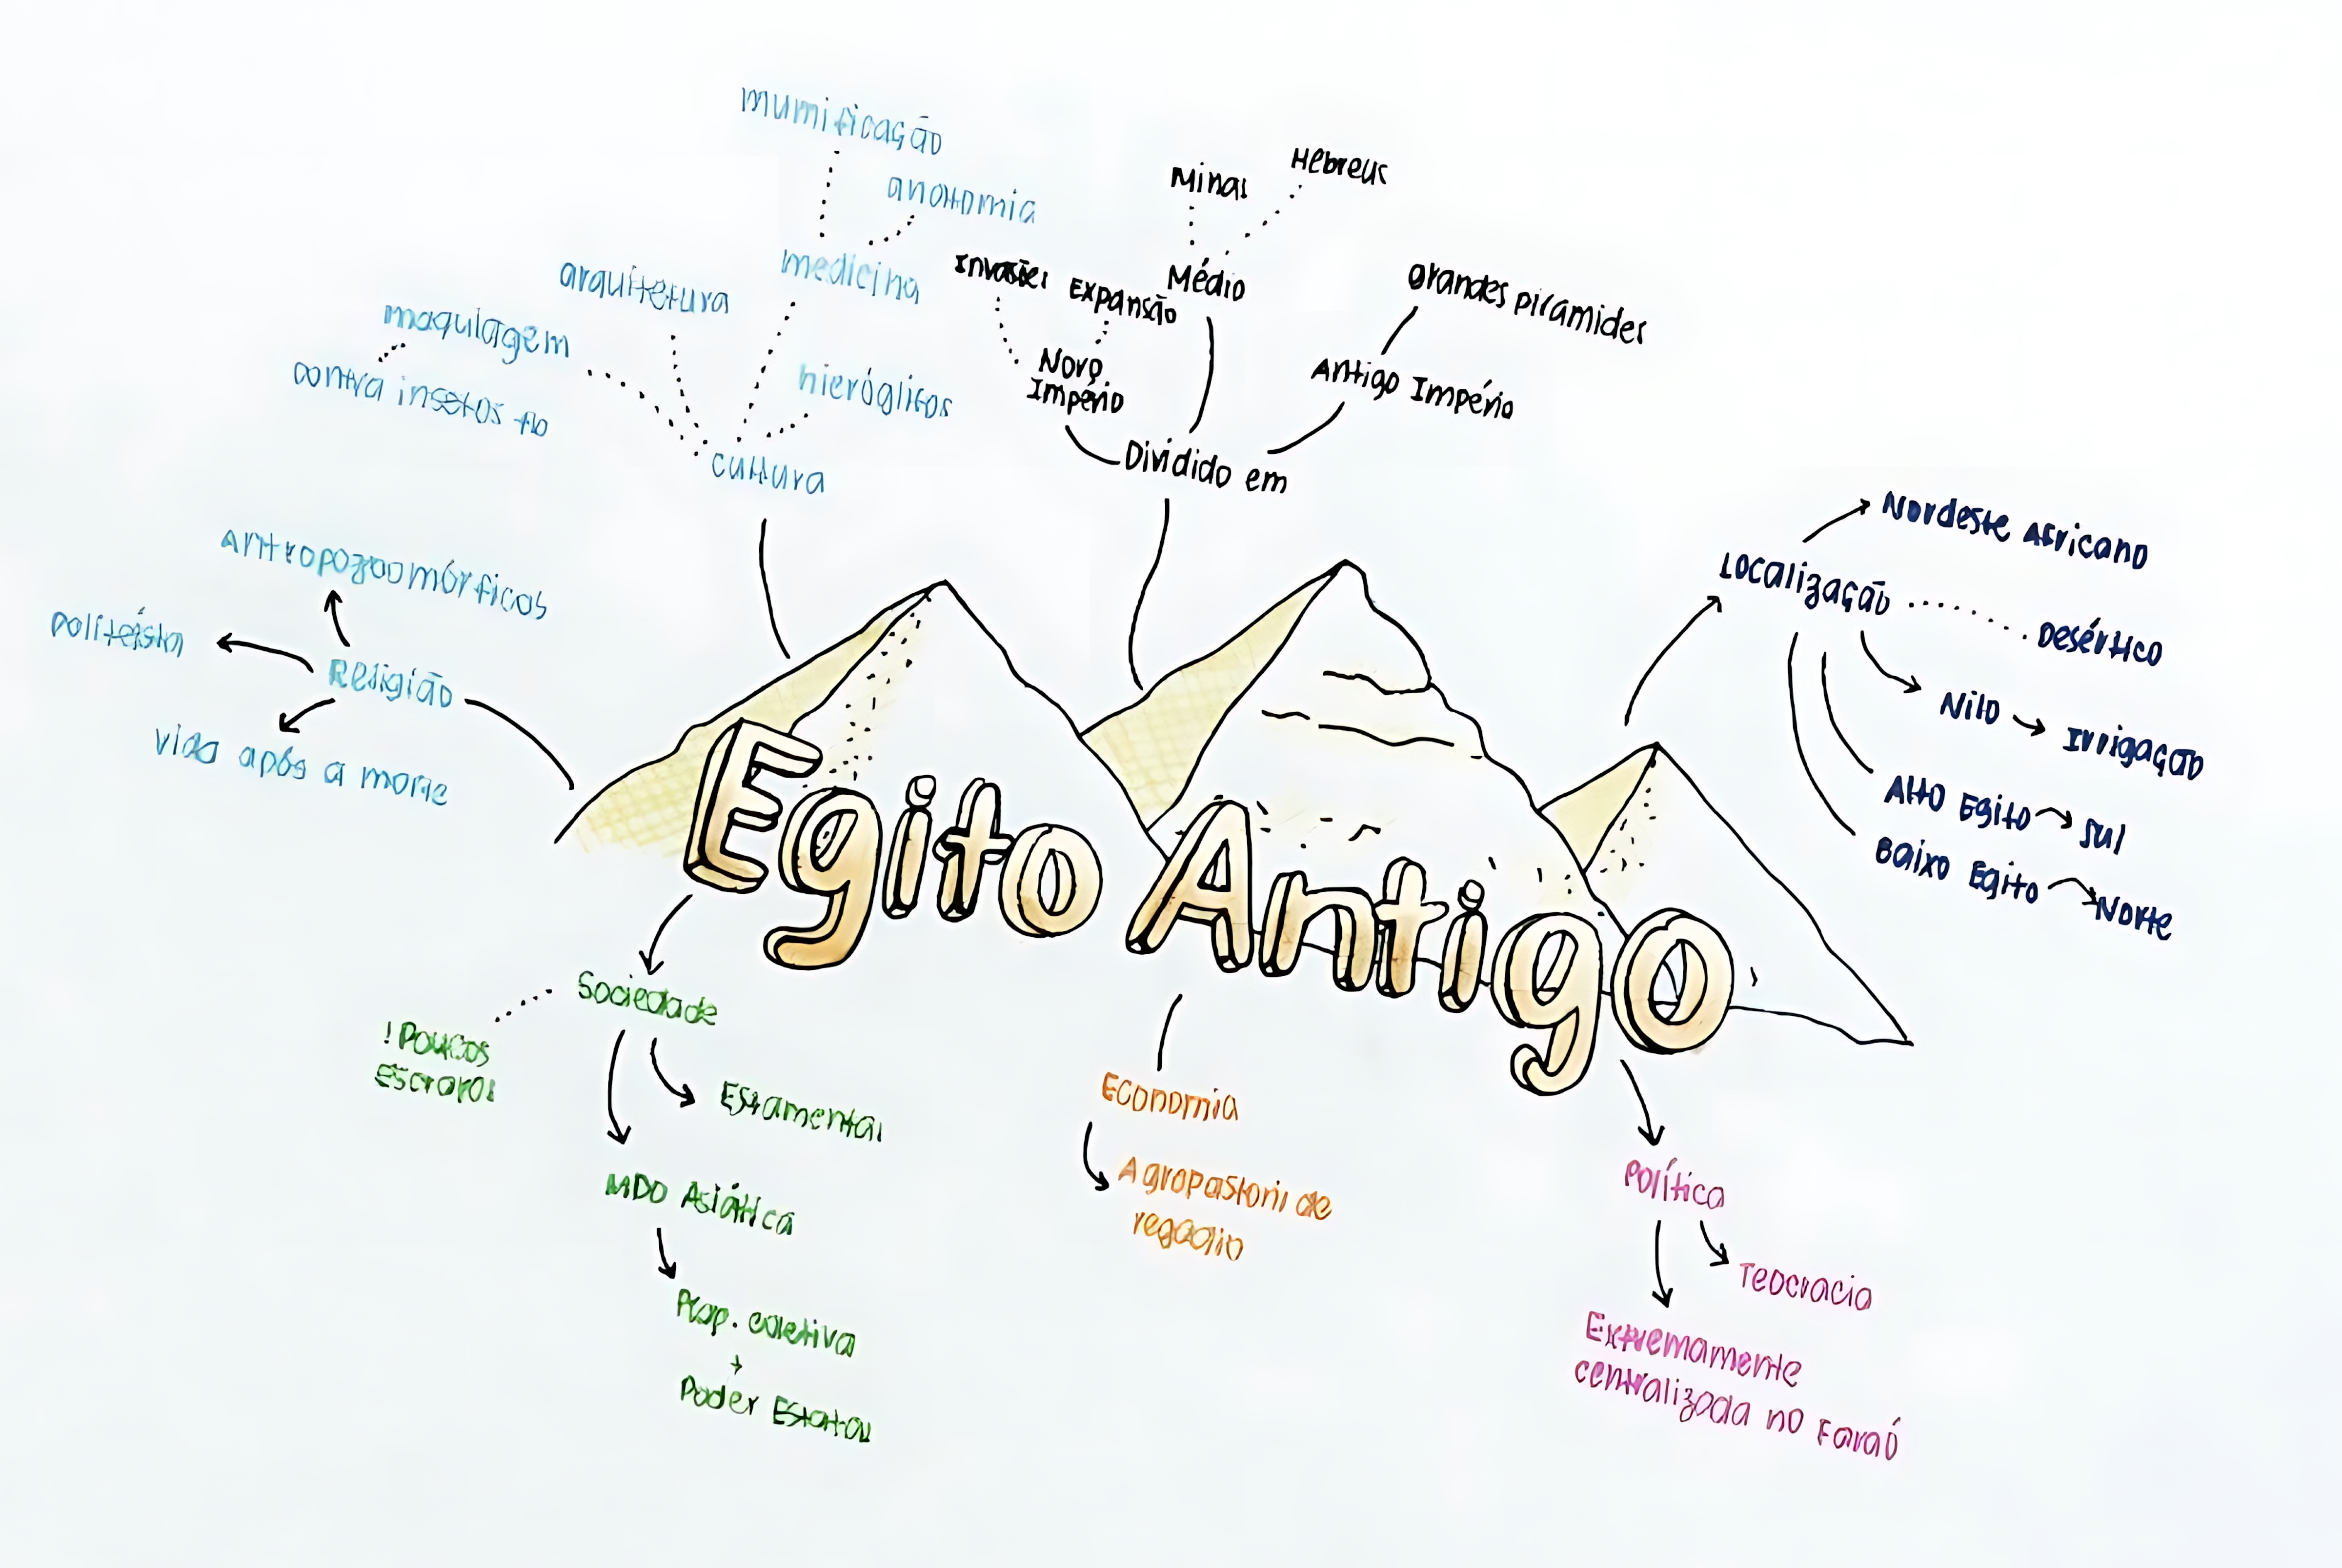 mumificação
anatomia
medicina
arquitetura
maquiagem
contra insetos tb
hieróglifos
cultura
Minas
Hebreus
Médio
Invasões
Expansão
Novo
Império
grandes pirâmides
Antigo Império
Dividido em
Nordeste Africano
Localização
Desértico
Nilo → Irrigação
Alto Egito → Sul
Baixo Egito → Norte
Antropozoomórficos
politeísta
Religião
vida após a morte
Egito Antigo
Sociedade
! Poucos
Escravos
Estamental
MDO Asiática
Prop. coletiva
+
Poder Estatal
Economia
Agropastoril de
regadio
Política
Teocracia
Extremamente
centralizada no Faraó